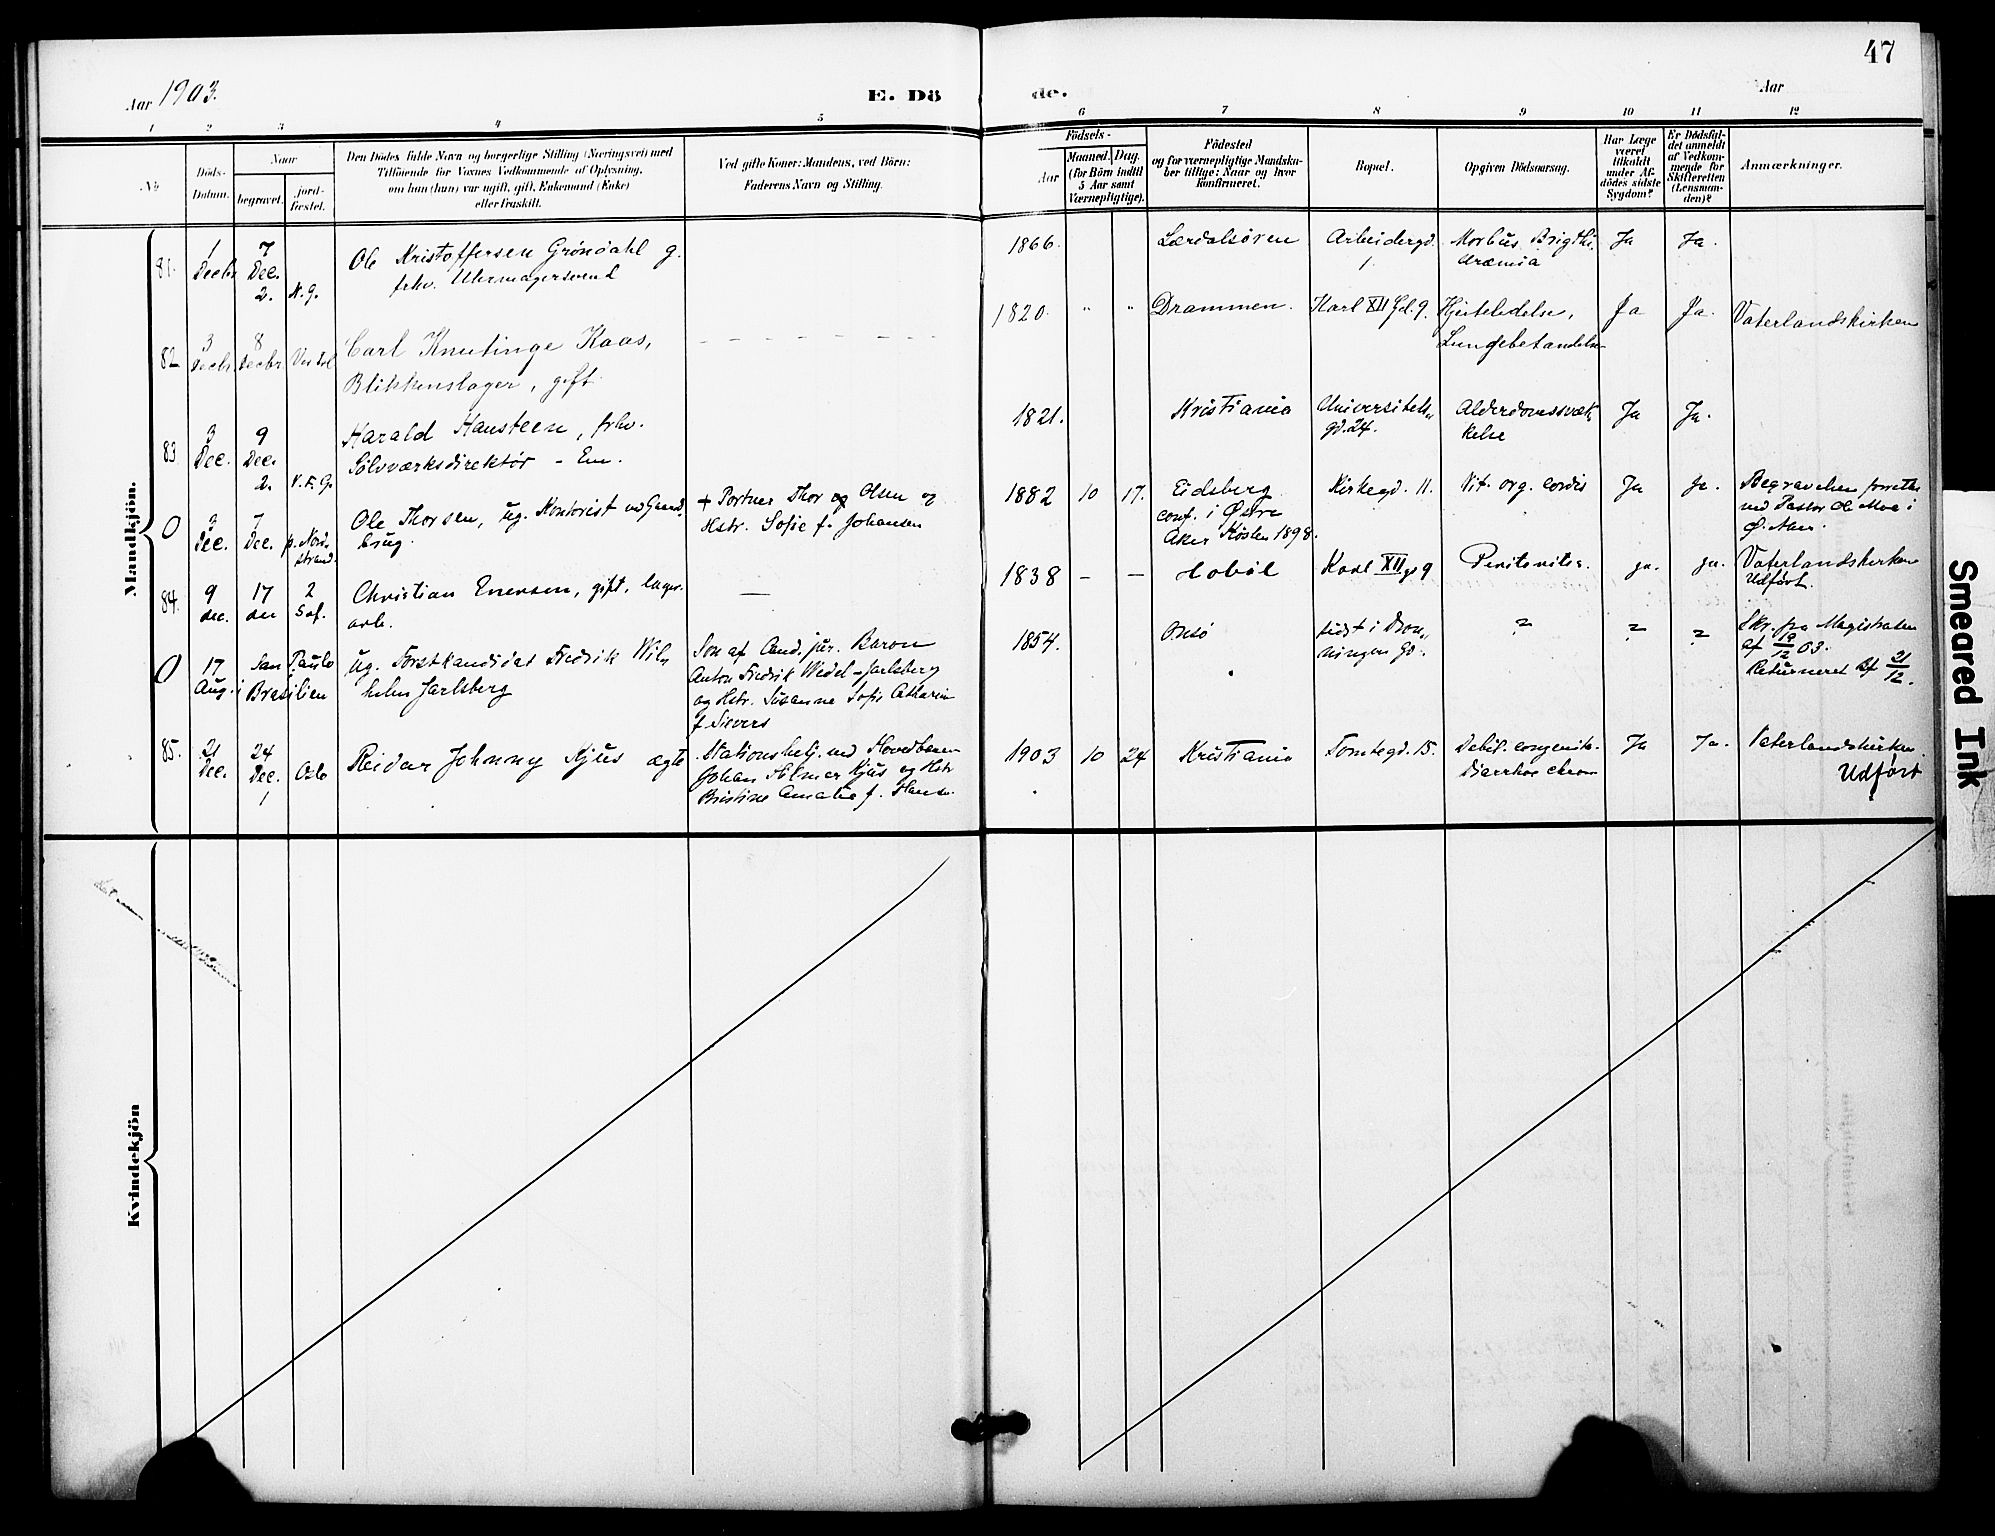 47
Aar 1903.
E. Dö
de.
Aar
1 2 3 4 5 6 7 8 9 10 11 12
No
Döds-
Datum.
Naar
begravet.
jord-
fæstet.
Den Dödes fulde Navn og borgerlige Stilling (Næringsvei) med
Tilföiende for Voxnes Vedkommende af Oplysning,
om han (hun) var ugift, gift, Enkemand (Enke)
eller fraskilt.
Ved gifte Koner: Mandens, ved Börn:
Faderens Navn og Stilling.
Födsels-
Aar
Maaned. Dag.
(for Börn indtil
5 Aar samt
Værnepligtige).
Födested
og for værnepligtige Mandska-
ber tillige: Naar og hvor
konfirmeret.
Bopæl.
Opgiven Dödsaarsag.
Har Læge
været
tilkaldt
under Af-
dödes sidste
Sygdom?
Er Dödsfal-
det anmeldt
af Vedkom-
mende for
Skifteretten
(Lensman-
den)?
Anmærkninger.
Mandkjön.
81.
1
Decbr
7
Dec.
2.
N.G.
Ole Kristoffersen Gröndahl g.
frhv. Uhrmagersvend
1866.
Lærdalsören
Arbeidergd.
1.
Morbus Brigthi.
Uræmia
Ja
Ja.
82
3
Decbr.
8
Decbr.
Carl Knutinge Kaas,
Blikkenslager, gift
1820.
" "
Drammen.
Karl XII Gd. 9.
Hjertelidelse,
Lungebetændelse
Ja
Ja.
Vaterlandskirken
83
3
Dec.
9
Dec.
2.
V.F.G.
Harald Hansteen, frhv.
Sölvværksdirektör - Em.
1821.
Kristiania
Universitets-
gd. 24.
Alderdomssvæk-
kelse
Ja
Ja.
0
3
Dec.
7
Dec.
p. Nord-
strand.
Ole Thorsen, ug. Kontorist ved
brug.
+ Portner Thor Olsen og
Hstr. Sofie f. Johansen
1882 10 17.
Eidsberg
conf. i Østre
Aker Høsten 1898.
Kirkegd. 11.
Vit. org. cordis
Ja
Ja.
Begravelsen forrettet
ved Pastor Ole Moe i
Ø. Aker.
84.
9
dec.
17
2
Sof.
Christian Enersen, gift, lager-
arb.
—
1838 – –
Hobøl
Karl XII g 9
Peritonitis.
ja.
ja.
Vaterlandskirken
Udført.
0
17
Aug. i
San Paulo
Brasilien
Ug. Forstkandidat Fredrik Wil-
helm Jarlsberg
Søn af Cand. jur. Baron
Anton Fredrik Wedel-Jarlsberg
og Hstr. Susanne Sofie Catharine
f. Sievers
1854.
sidst i Dron-
ningens Gd.
?
?
?
Skr. fra Magistraten
af 19/12 03.
Returneret af 21/12.
85.
21
Dec.
24
Dec.
1
Oslo
Reidar Johnny Kjus ægte
Stationsbetj. ved Hovedbanen
Johan Hilmar Kjus og Hstr
Amalie f. Hansen.
1903 10 24
Kristiania
Tomtegd. 15.
Debil. congenita.
Diarrhoe chron
Ja
Ja.
Vaterlandskirken.
Udført
Kvindekjön
Smeared Ink